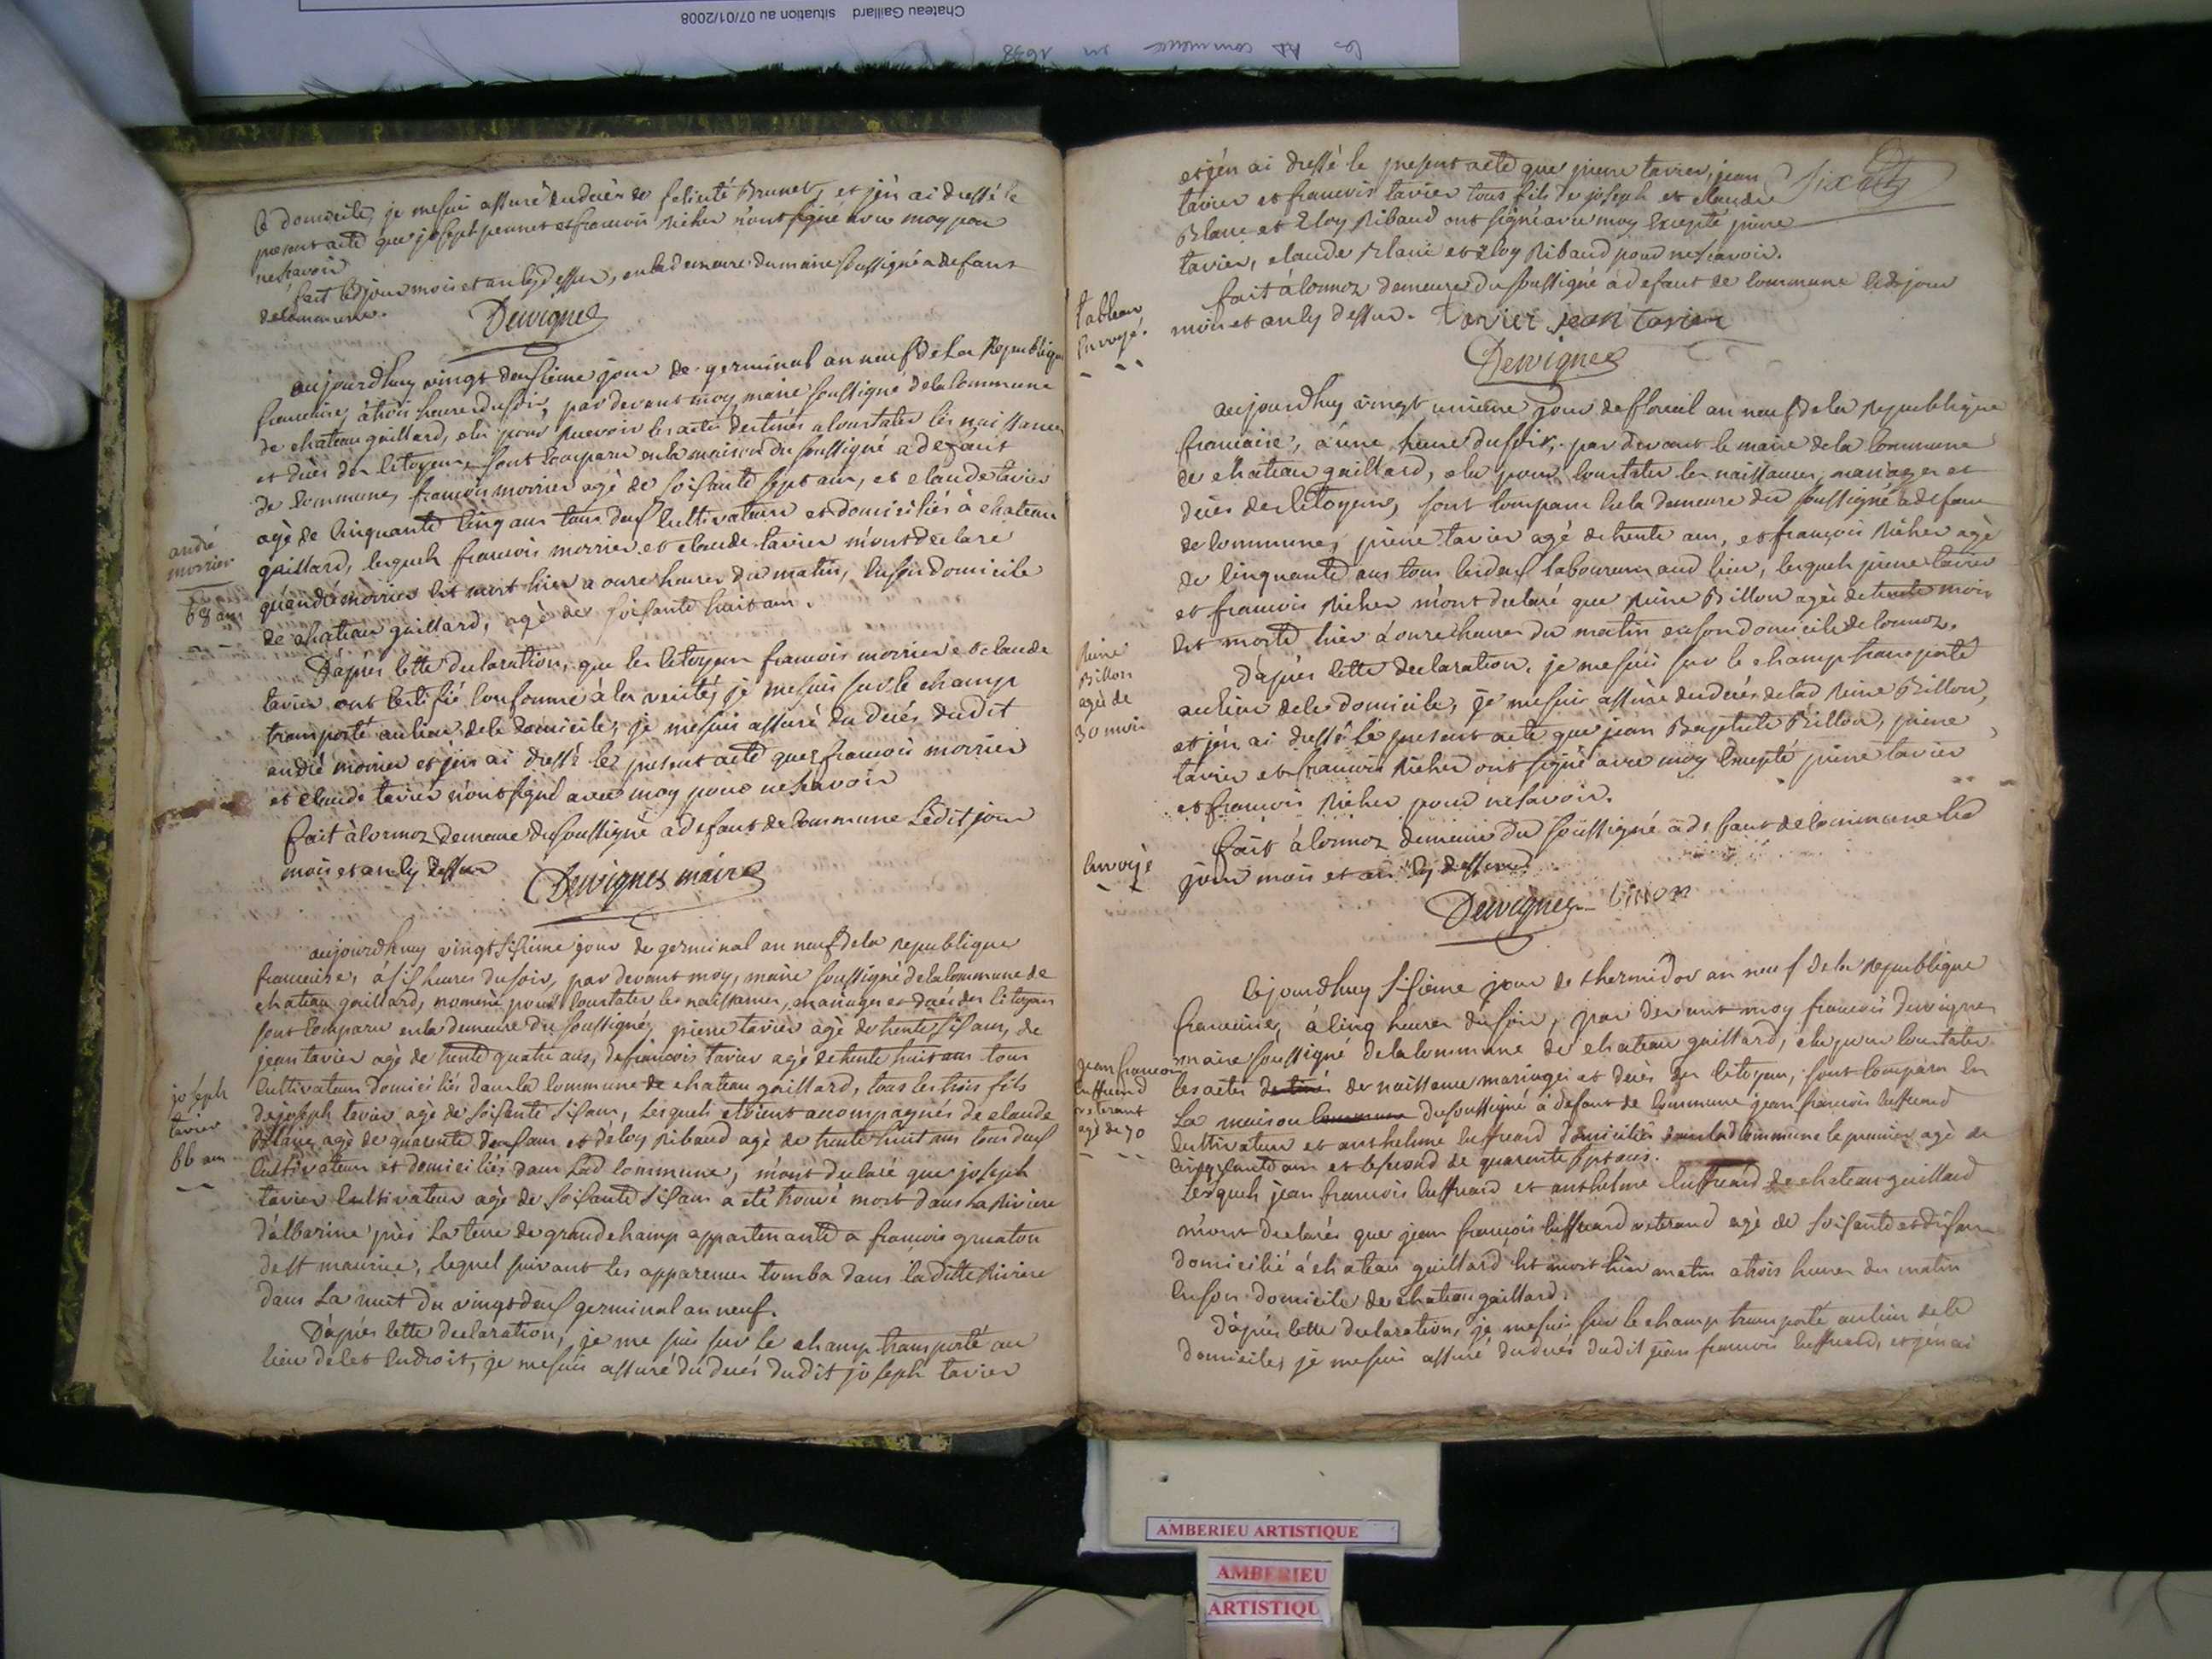 Chateau Gaillard situation au 07/01/2008
les commence en
ce domicile, je mesuis assuré du decès de felicité Brunet, et j'en ai dressé le
present acte que joseph perinet et francois Richer n'ont signé avec moy pour
ne scavoir
fait led jour mois et an cy dessus, en la demeure du maire soussigné a defaut
de commune.
Dervignes
aujourdhuy vingt deuxieme jour de germinal an neuf de la Republique
francaise, à trois heures du soir, par devant moy maire soussigné de la Commune
de chateau gaillard, elu pour recevoir les actes destinés a constater les naissances
et decès des citoyens, sont comparu en la maison du soussigné a defaut
de commune, francois morrier agé de soisante sept ans, et claude tavier
agé de cinquante cinq ans tous deux cultivateurs et domiciliés à chateau
gaillard, lesquels francois morrier et claude tavier m'ont declaré
qu'andré morrier est mort hier a onze heures du matin, en son domicile
de chateau gaillard, agé de soisante huit ans.
andré
morrier
68 ans
D'après cette declaration, que les citoyens francois morrier et claude
tavier ont certifié conforme à la verité, je mesuis sur le champ
transporté au lieu de ce domicile, je mesuis assuré du decés dudit
andré morrier et j'en ai dressé le present acte que francois morrier
et claude tavier n'ont signé avec moy pour ne scavoir
fait à cormoz demeure du soussigné à defaut de commune ledit jour
mois et an cy dessus
Dervignes maire
aujourdhuy vingt sixieme jour de germinal an neuf de la republique
francaise, à six heures du soir, par devant moy, maire soussigné de la commune de
chateau gaillard, nommé pour constater les naissances, mariages et decès des citoyens
sont comparu en la demeure du soussigné, pierre tavier agé de trente six ans, de
jean tavier agé de trente quatre ans, de francois tavier agé de trente huit ans tous
cultivateurs domiciliés dans la commune de chateau gaillard, tous les trois fils
de joseph tavier agé de soisante six ans, lesquels etoient acompagnés de claude
Blanc agé de quarente deux ans et d'eloy Ribaud agé de trente huit ans tous deux
cultivateurs et domiciliés dans lad commune, m'ont declaré que joseph
tavier cultivateur agé de soisante six ans a eté trouvé mort dans la Riviere
d'albarine près la terre de grand champ appartenante a francois gruaton
de st maurice, lequel suivant les apparences tomba dans la ditte Riviere
dans la nuit du vingt deux germinal an neuf.
joseph
tavier
66 ans
D'après cette declaration, je me suis sur le champ transporté au
lieu de cet endroit, je mesuis assuré du decés dudit joseph tavier
et j'en ai dressé le present acte que pierre tavier, jean
tavier et francois tavier tous fils de joseph et claude
Blanc et Eloy Ribaud ont signé avec moy excepté pierre
tavier, claude Blanc et eloy Ribaud pour ne scavoir.
fait à cormoz demeure du soussigné à defaut de commune led jour
mois et an cy dessus. Tavier jean tavier
Dervignes
tableau
envoyé.
aujourdhuy vingt unieme jour de floreal an neuf de la republique
francaise, à une heure du soir, par devant le maire de la commune
de chateau gaillard, elu pour constater les naissances, mariages et
decès des citoyens, sont comparu en la demeure du soussigné a defaut
de commune, pierre tavier agé de trente ans, et françois Richer agé
de cinquante ans tous les deux laboureurs aud lieu, lesquels pierre tavier
et francois Richer m'ont declaré que Reine Billon agée de trente mois
est morte hier à onze heures du matin en son domicile de cormoz.
Reine
Billon
agée de
30 mois
D'après cette declaration, je mesuis sur le champ transporté
au lieu de ce domicile, je mesuis assuré du decés de lad Reine Billon,
et j'en ai dressé le present acte que jean Baptiste Billon, pierre
tavier et francois Richer ont signé avec moy excepté pierre tavier
et francois Richer pour ne savoir.
fait à cormoz demeure du soussigné à defaut de commune led
jour mois et an cy dessus
envoyé
Dervignes Billon
Cejourdhuy sixieme jour de thermidor an neuf de la republique
francaise, à cinq heures du soir, par devant moy francois dervignes
maire soussigné de la commune de chateau gaillard, elu pour constater
les actes destinés de naissance mariages et decès des citoyens, sont comparu en
la maison commune du soussigné à defaut de commune jean francois
cultivateur et anthelme domiciliés dans lad commune le premier agé de
cinquante ans et le second de quarente sept ans.
lesquels jean francois et anthelme de chateau gaillard
m'ont declarés que jean françois veterand agé de soisante et dix ans
domicilié à chateau gaillard est mort hier matin a trois heures du matin
en son domicile de chateau gaillard.
jean francois
veterant
agé de 70
D'après cette declaration, je mesuis sur le champ transporté au lieu de ce
domicile, je mesuis assuré du decés dudit jean francois et j'en ai
AMBERIEU ARTISTIQUE
AMBERIEU
ARTISTIQU